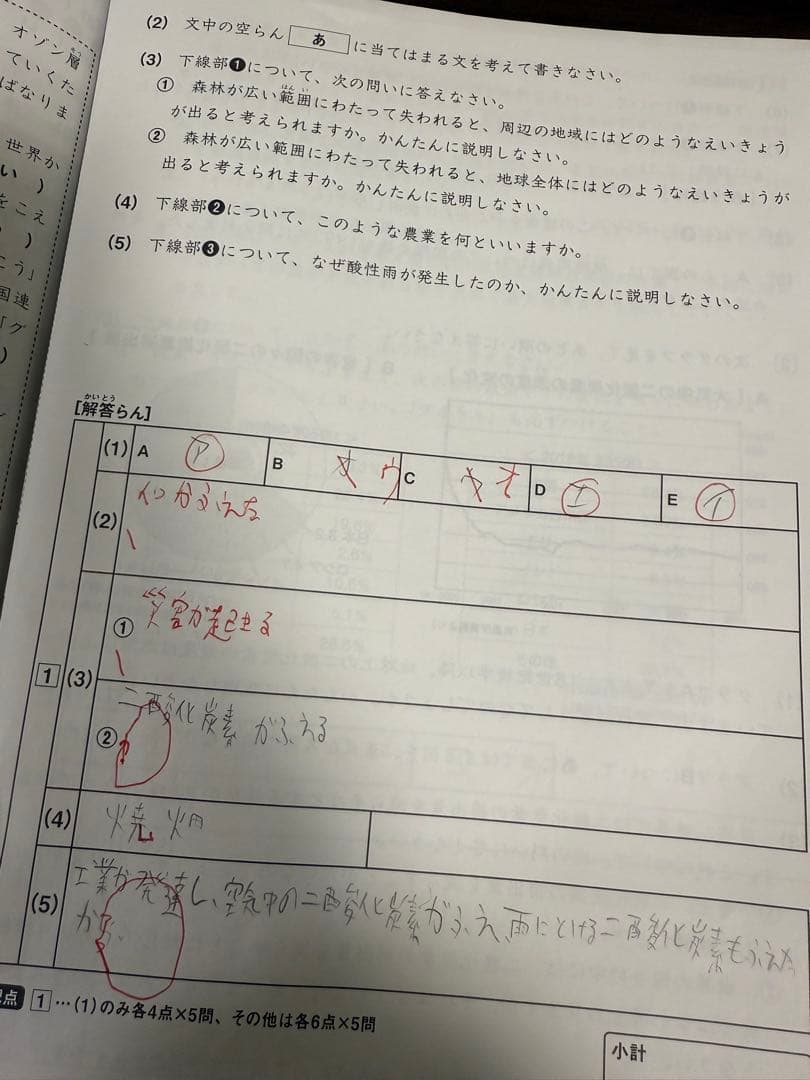 オゾン層
ていくた
ばなりま
世界か
い )
をこえ
)
こう」
国連
「グ
)
(2) 文中の空らん あ に当てはまる文を考えて書きなさい。
(3) 下線部❶について、次の問いに答えなさい。
① 森林が広い範囲にわたって失われると、周辺の地域にはどのようなえいきょう
が出ると考えられますか。かんたんに説明しなさい。
② 森林が広い範囲にわたって失われると、地球全体にはどのようなえいきょうが
出ると考えられますか。かんたんに説明しなさい。
(4) 下線部❷について、このような農業を何といいますか。
(5) 下線部❸について、なぜ酸性雨が発生したのか、かんたんに説明しなさい。
[解答らん]
1
(1) A ア B オ ウ C オ D エ E イ
(2) がふえる
(3) ① 災害が起きる
② 二酸化炭素がふえる
(4) 焼畑
(5) 工業が発達し、空気中の二酸化炭素がふえ、雨にとける二酸化炭素もふえた
から、
配点 1…(1)のみ各4点×5問、その他は各6点×5問
小計